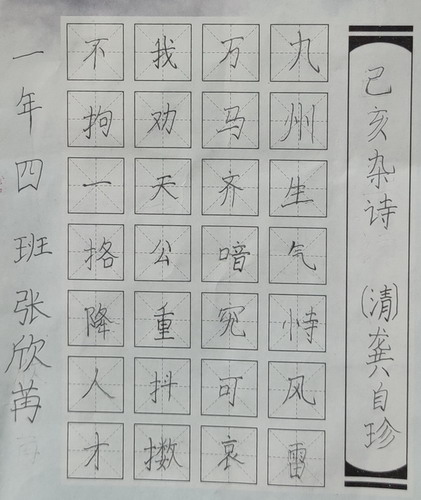 己亥杂诗 (清)龚自珍
九州生气恃风雷
万马齐喑究可哀
我劝天公重抖擞
不拘一格降人才
一年四班张欣苒